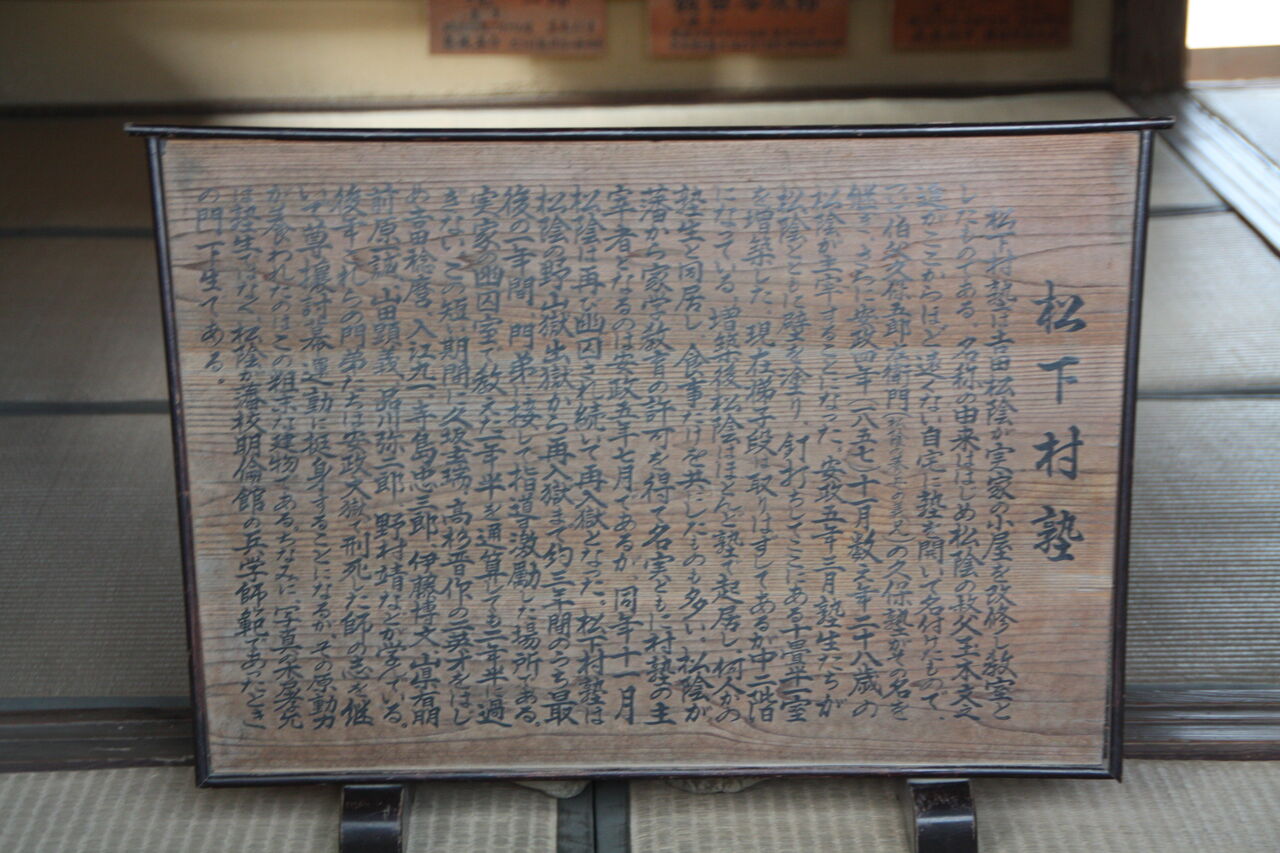 松下村塾
松下村塾は吉田松陰が実家の小屋を改修し教室と
したものである。名称の由来ははじめ松陰の叔父玉木文之
進がここからほど遠くない自宅に塾を開いて名付けたもので、
つぎに伯父久保五郎左衛門の久保塾がその名を
継ぎ、さらに安政四年(一八五七)十一月数え年二十八歳の
松陰が主宰することになった。安政五年三月塾生たちが
松陰とともに壁を塗り、釘打ちしてここにある十畳半一室
を増築した。現在梯子段は取りはずしてあるが中二階
になっている。増築後松陰はほとんど塾で起居し、何人かの
塾生と同居し、食事だけを共にしたものも多い。松陰が
藩から家学教育の許可を得て名実ともに村塾の主
宰者となるのは安政五年七月であるが、同年十一月
松陰は再び幽囚され続いて再入獄となった。松下村塾は
松陰の野山獄出獄から再入獄まで約三年間のうち最
後の一年間、門弟に接して指導激励した場所である。
実家の幽囚室で教えた一年半を通算しても二年半に過
きない。この短い期間に久坂玄瑞、高杉晋作の二英才をはじ
め吉田稔麿、入江九一、寺島忠三郎、伊藤博文、山県有朋、
前原一誠、山田顕義、品川弥二郎、野村靖などが学んでいる。
後年これらの門弟たちは安政大獄で刑死した師の志を継
いで尊攘討幕運動に挺身することになるが、その原動力
が養われたのはこの粗末な建物である。ちなみに
は塾生ではなく、松陰が藩校明倫館の兵学師範であったとき
の門下生である。